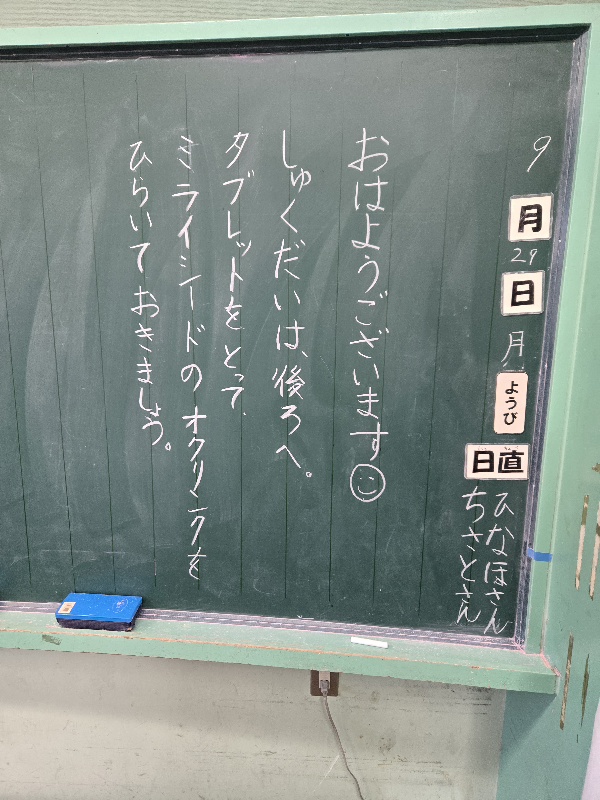 9月29日月ようび
日直 ひなほさん
ちさとさん
おはようございます☺
しゅくだいは、後ろへ。
タブレットをとって、
ミライシードのオクリンクを
ひらいておきましょう。